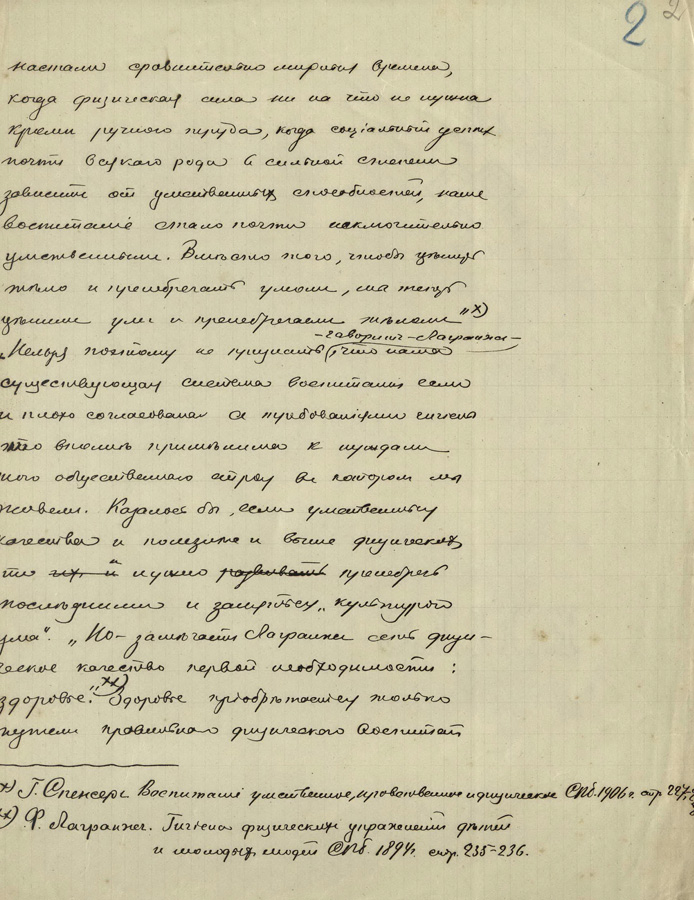 2 2
настали сравнительно мирныя времена,
когда физическая сила ни на что не нужна
кромѣ ручного труда, когда соціальный успѣх
почти всякаго рода в сильной степени
зависитъ от умственных способностей, наше
воспитаніе стало почти исключительно
умственным. Вмѣсто того, чтобы цѣнить
тѣло и пренебрегать умом, мы теперь
цѣним ум и пренебрегаем тѣлом" х)
- говорит Лагранж -
„Нельзя поэтому не признать, что наша
существующая система воспитания если
и плохо согласована с требованіями гигіены
то вполнѣ примѣнима к нуждам
того общественнаго строя в котором мы
живем. Казалось бы, если умственныя
качества и полезнѣе и выше физических
то их и нужно развивать пренебречь
послѣдними и заняться „культурой
ума". „Но - замѣчаетъ Лагранж есть физи-
ческое качество первой необходимости:
здоровье." хх) Здоровье пріобрѣтается только
путем правильнаго физического воспитат
х) Г. Спенсеръ Воспитаніе умственное, нравственное и физическое СПб. 1906 г. стр. 227,
хх) Ф. Лагранж. Гигіена физических упражненій дѣтей
и молодых людей СПб. 1894г. стр. 235-236.